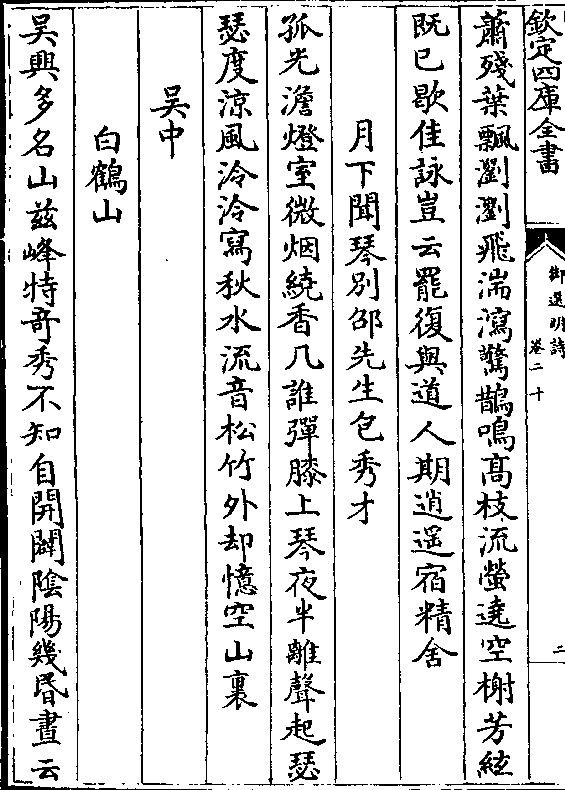 欽定四庫全書
御選明詩
卷二十
二
蕭殘葉飄瀏瀏飛湍瀉驚鵲鳴高枝流螢遶空榭芳絃
既已歇佳詠豈云罷復與道人期逍遥宿精舍
月下聞琴别邵先生包秀才
孤光澹燈室微烟繞香几誰彈膝上琴夜半離聲起瑟
瑟度凉風泠泠寫秋水流音松竹外却憶空山裏
吴中
白鶴山
吴興多名山兹峰特竒秀不知自開闢陰陽幾昏晝云